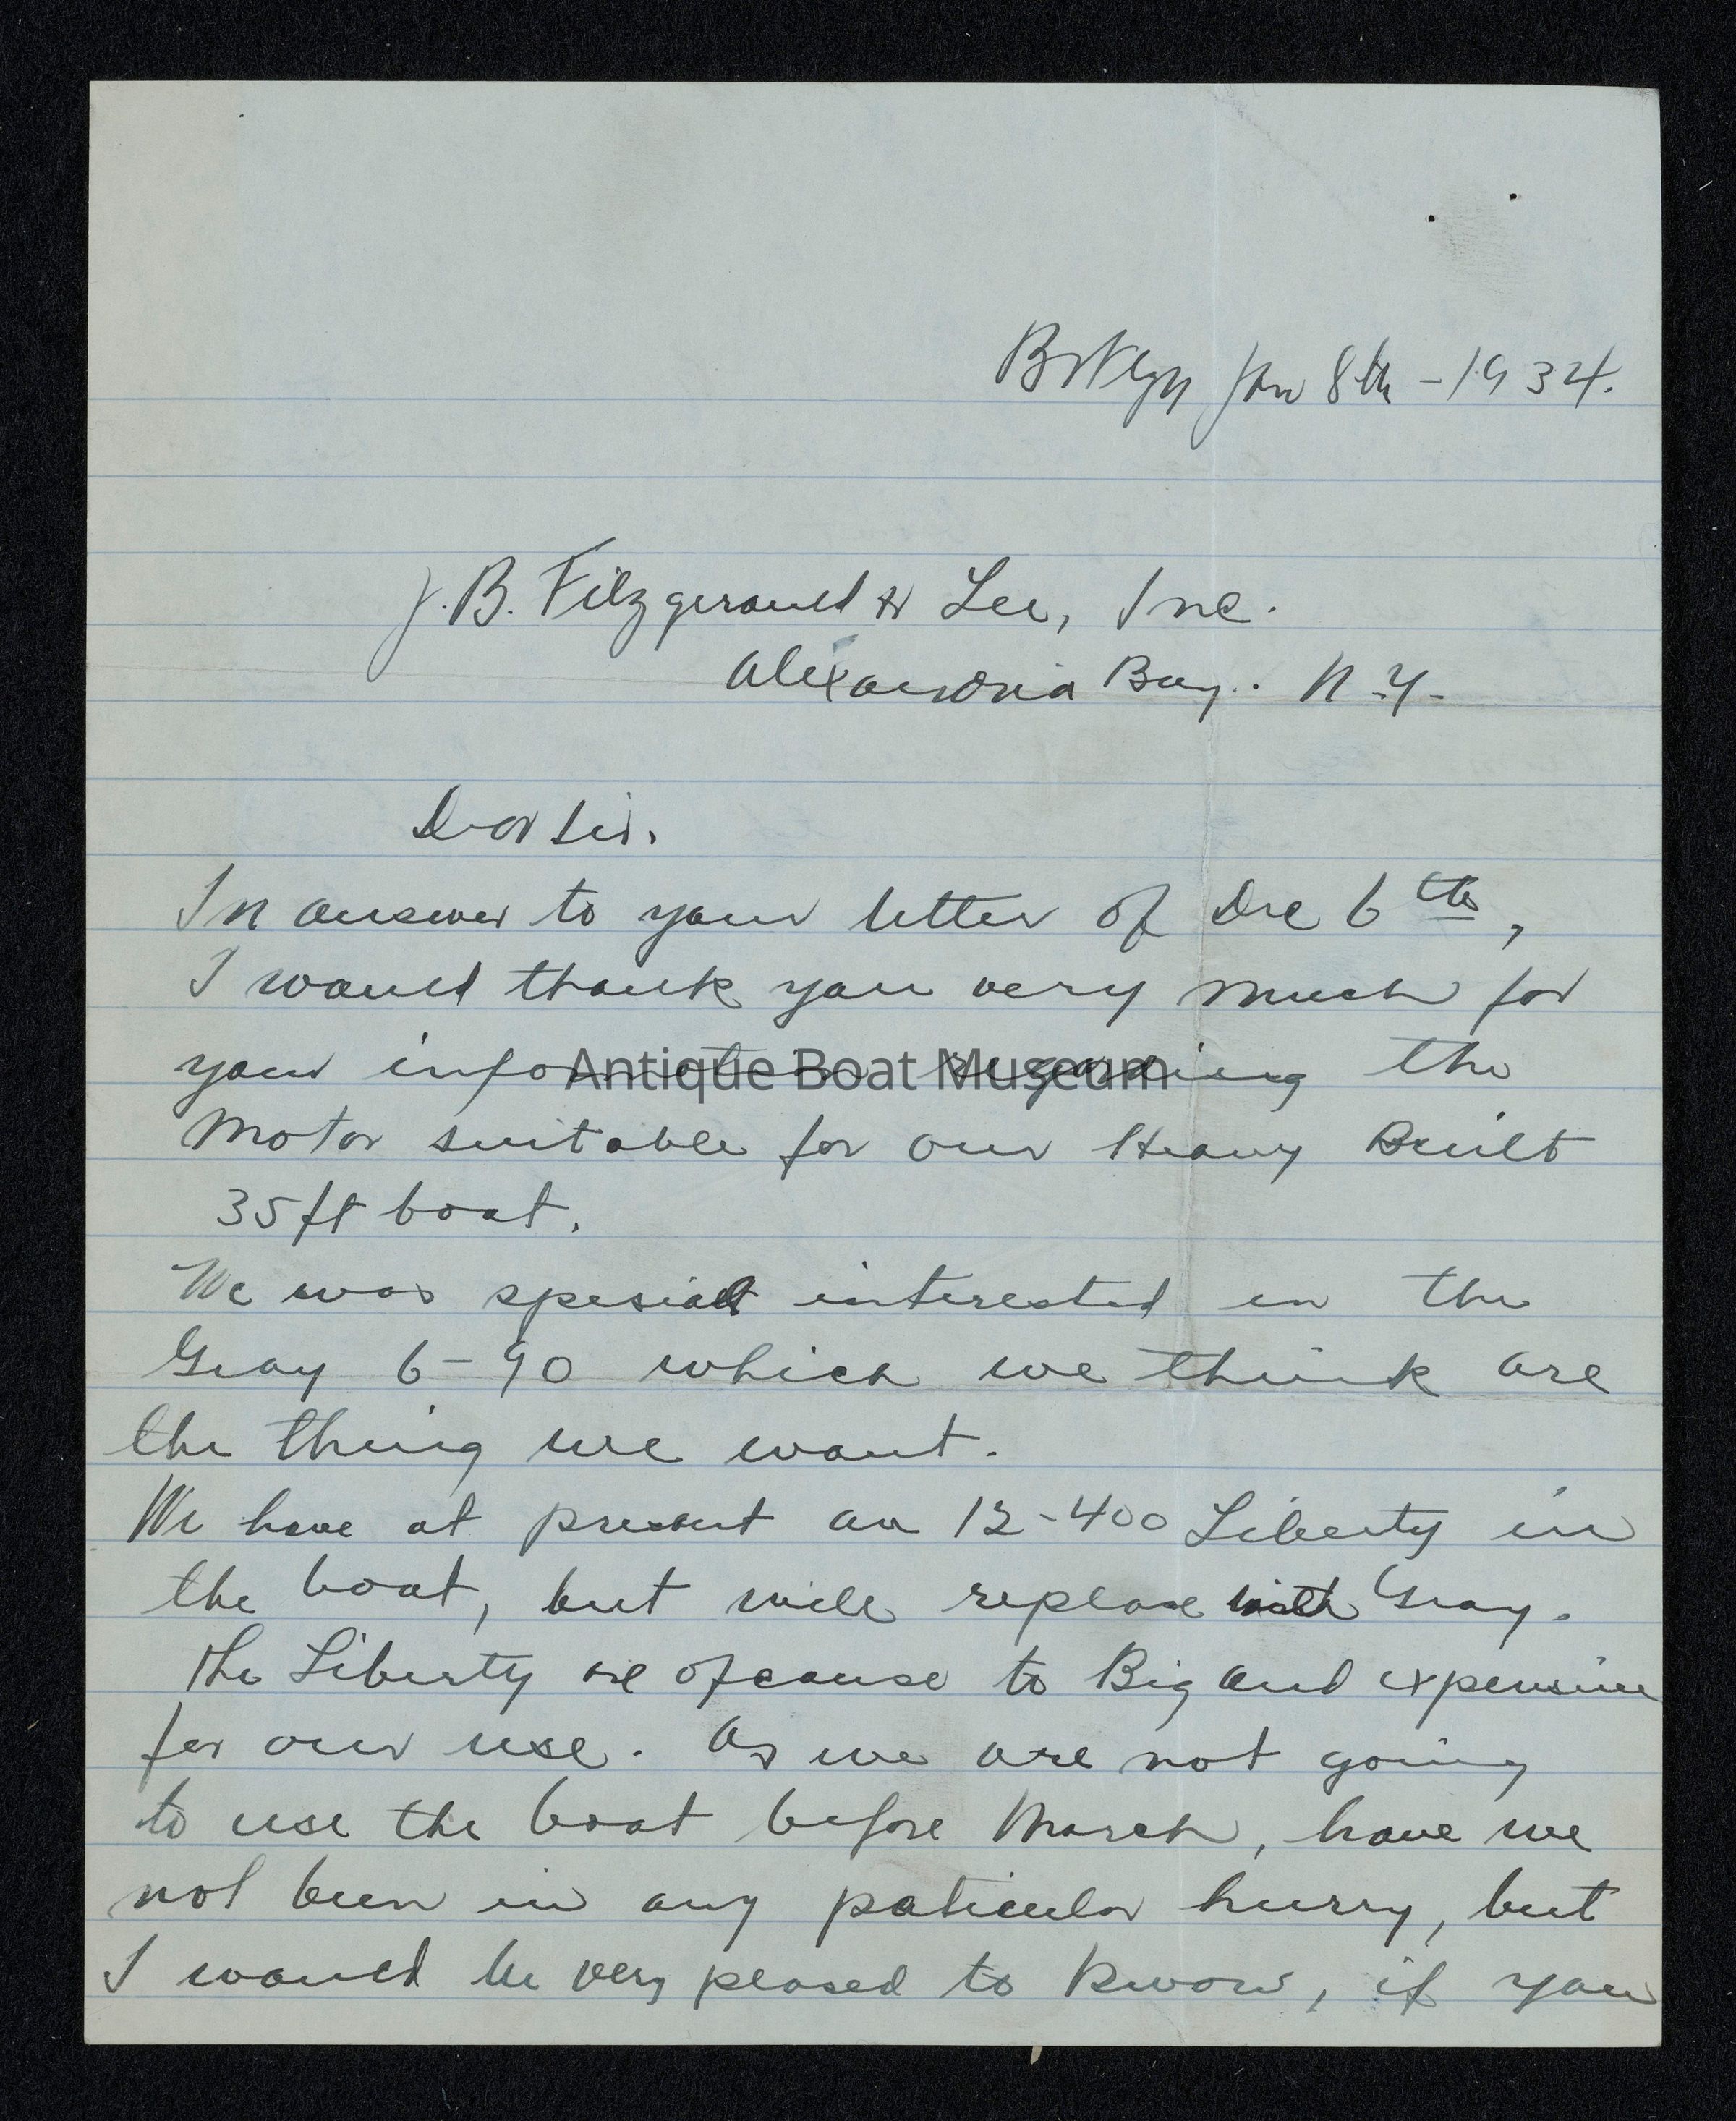 Brklyn Jan 8th - 1934.
J. B. Fitzgerauld & Lee, Inc.
Alexandria Bay. N.Y.
Dear Sir.
In answer to your letter of Dec 6th,
I would thank you very much for
your information regarding the
Antique Boat Museum
Motor suitable for our Heavy Built
35 ft boat.
We was spesiall interested in the
Gray 6-90 which we think are
the thing we want.
We have at present an 12-400 Liberty in
the boat, but will replase with Gray.
The Liberty are ofcause to Big and expensive
for our use. As we are not going
to use the boat before March, have we
not been in any paticular hurry, but
I would be very pleased to know, if you